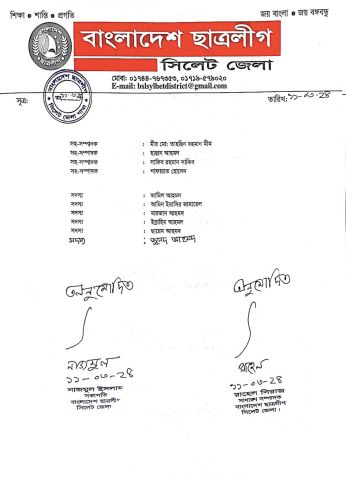 শিক্ষা ● শান্তি ● প্রগতি
জয় বাংলা ● জয় বঙ্গবন্ধু
বাংলাদেশ ছাত্রলীগ
সিলেট জেলা
মোবা: ০১৭৪৪-৭৬৭৩৫৩, ০১৭১৯-৫৭৯০২০
E-mail: bslsylhetdistrict@gmail.com
সূত্র:
তারিখ: ১১-০৩-২৪
সহ-সম্পাদক : মীর মো: তাহছিন রহমান মীম
সহ-সম্পাদক : হাছান আহমদ
সহ-সম্পাদক : সাকিব রহমান সাকিন
সহ-সম্পাদক : শাফায়াত হোসেন
সদস্য : জামিল আহমদ
সদস্য : আমিন ইয়াসির জামায়েল
সদস্য : মারজান আহমদ
সদস্য : ইব্রাহিম আহমদ
সদস্য : ছায়েম আহমদ
সদস্য : জুনেদ আহমদ
অনুমোদিত
অনুমোদিত
নাজমুল
১১-০৩-২৪
নাজমুল ইসলাম
সভাপতি
বাংলাদেশ ছাত্রলীগ
সিলেট জেলা
রাহেল
১১-০৩-২৪
রাহেল সিরাজ
সাধারণ সম্পাদক
বাংলাদেশ ছাত্রলীগ
সিলেট জেলা।